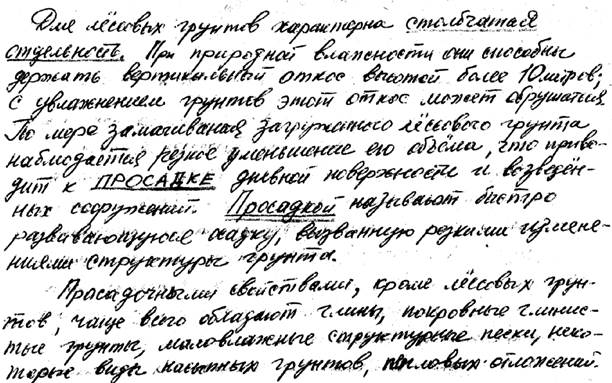 Для лёссовых грунтов характерна столбчатая
отдельность. При природной влажности они способны
держать вертикальный откос высотой более 10 метров;
с увлажнением грунтов этот откос может обрушаться
По мере замачивания загруженного лёссового грунта
наблюдается резкое уменьшение его объема, что приво-
дит к ПРОСАДКЕ дневной поверхности и возведён-
ных сооружений. Просадкой называют быстро
развивающуюся осадку, вызванную резкими измене-
ниями структуры грунта.
Просадочными свойствами, кроме лёссовых грун-
тов, чаще всего обладают глины, покровные глинис-
тые грунты, маловлажные структурные пески, неко-
торые виды насыпных грунтов, пепловых отложений.